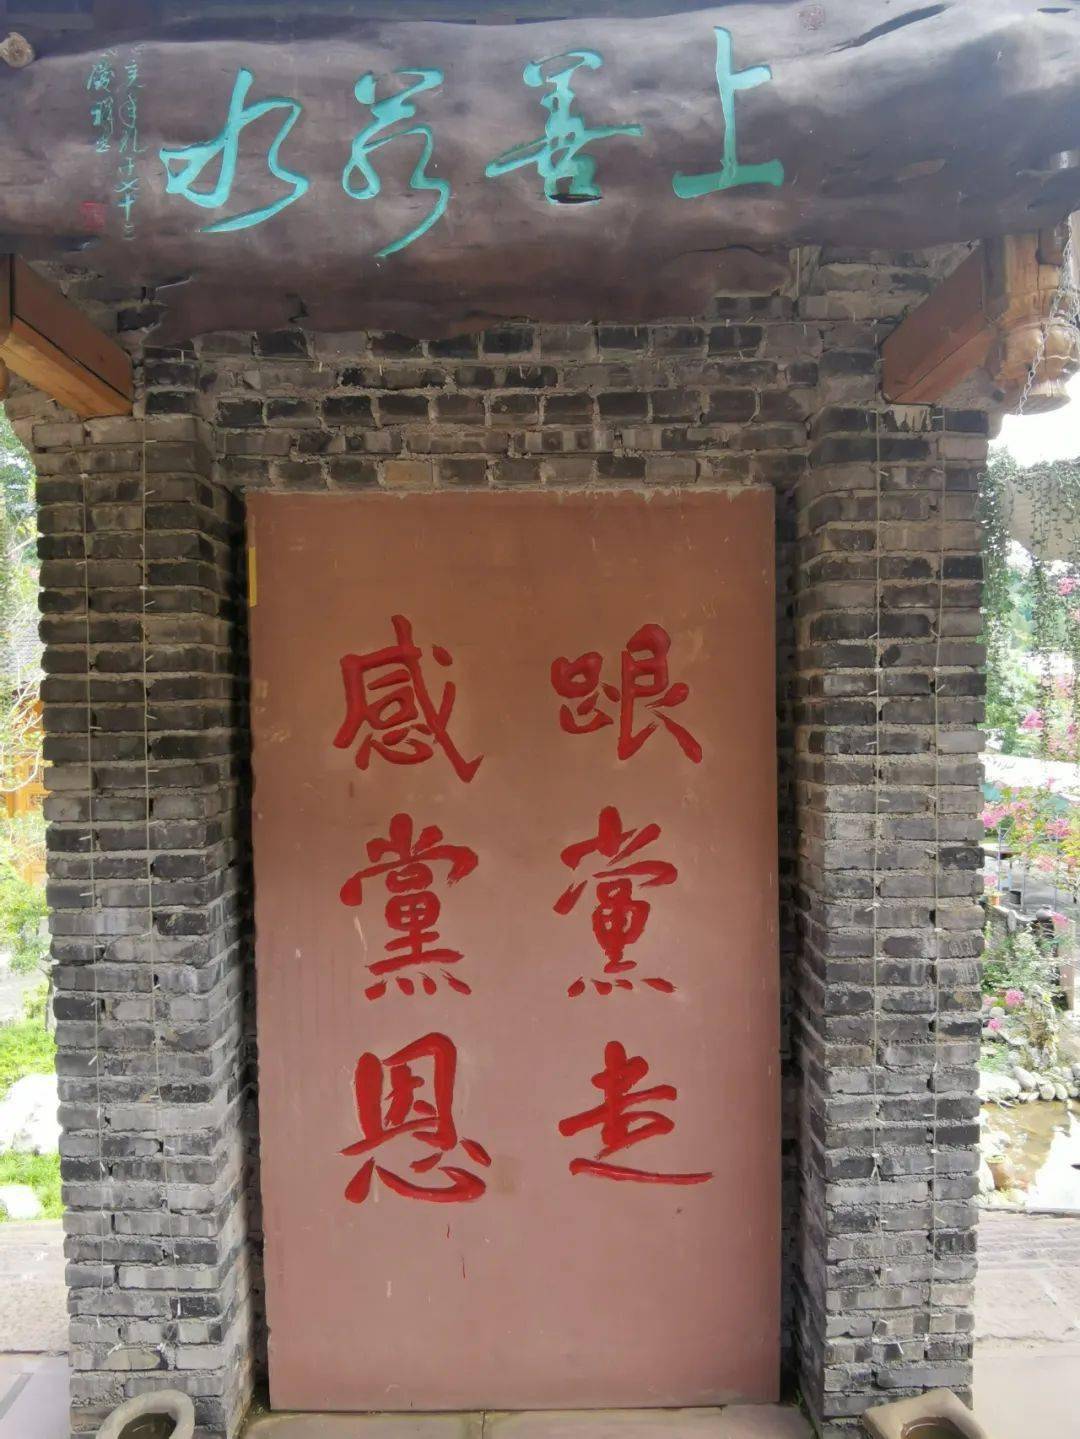 上善若水
跟黨走
感黨恩